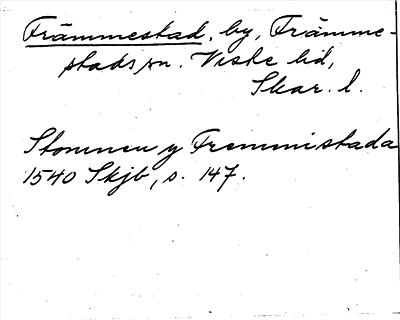 Främmestad, by, Främme-
stads sn. Viste hd,
Skar. l.
Stommen y Fremmistada
1540 Skjb, s. 147.